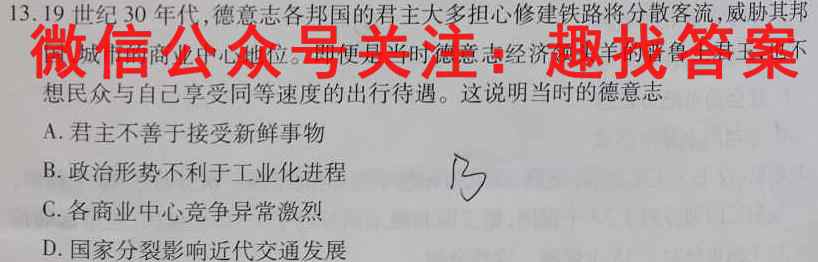 13. 19 世纪 30 年代,德意志各邦国的君主大多担心修建铁路将分散客流,威胁其邦
微信公众号关注：趣找答案
城市的商业中心地位。即便是当时德意志经济 的普鲁士君王,也不
想民众与自己享受同等速度的出行待遇。这说明当时的德意志
A. 君主不善于接受新鲜事物
B. 政治形势不利于工业化进程
B
C. 各商业中心竞争异常激烈
D. 国家分裂影响近代交通发展